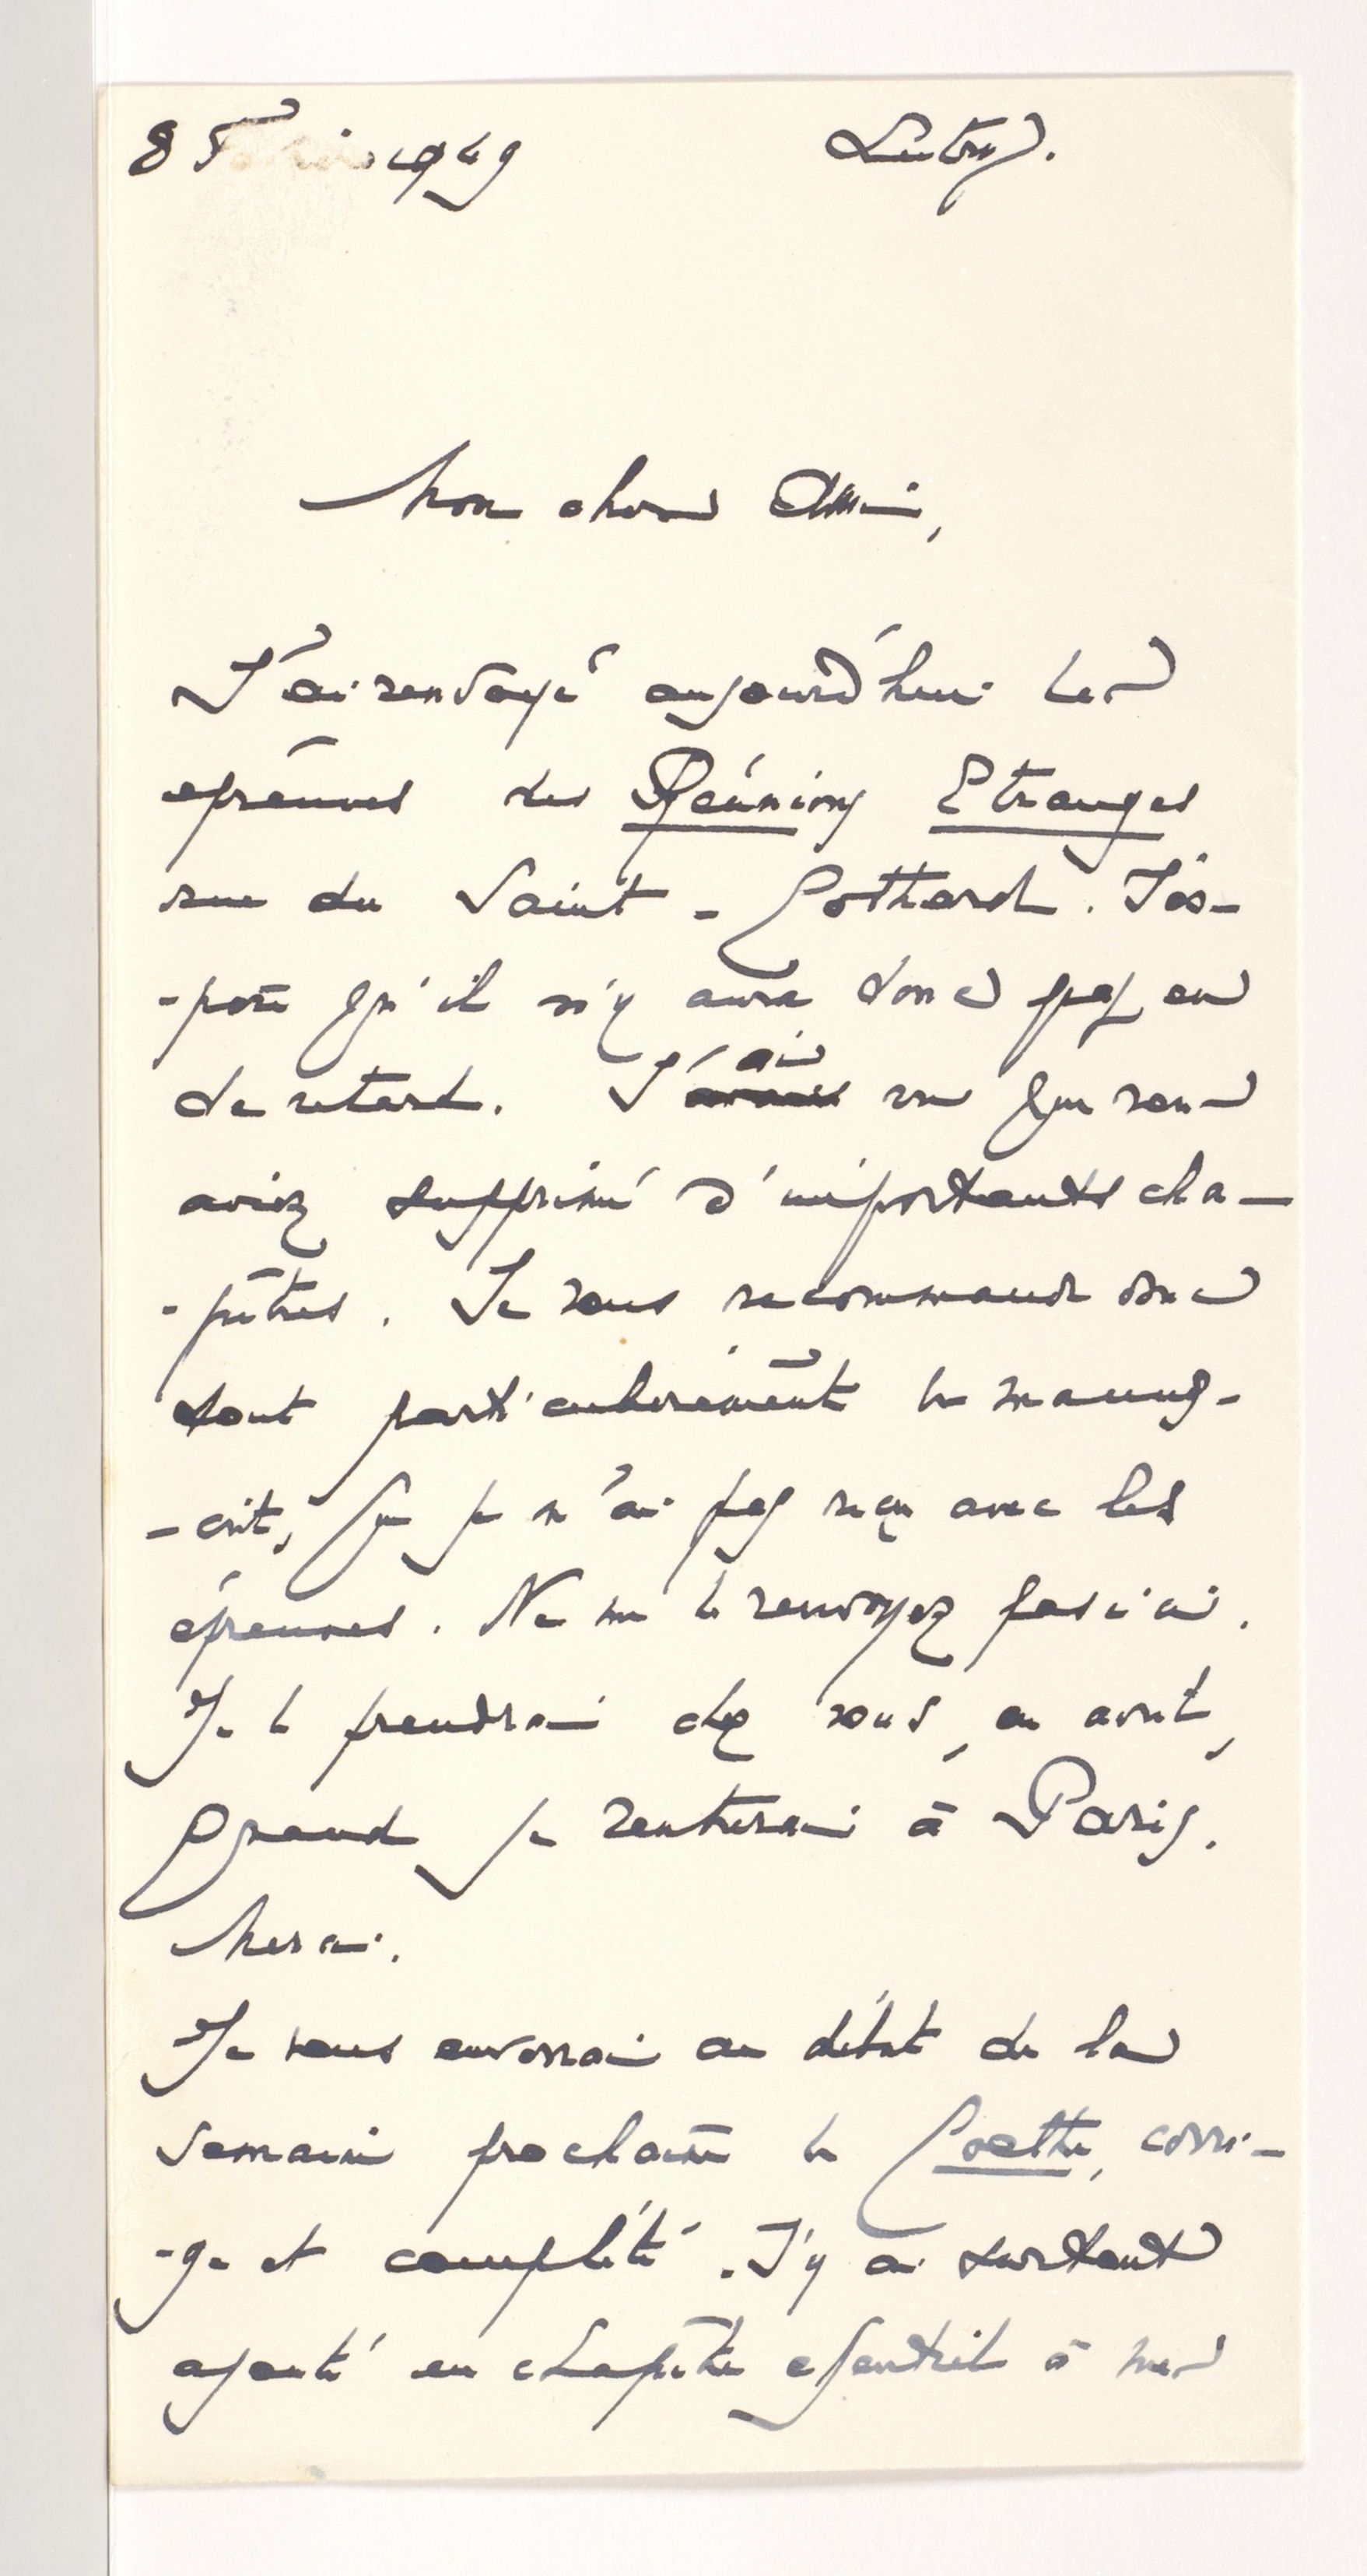 8 F 1949 Lutry.
Mon cher Ami,
J'ai renvoyé aujourd'hui les
épreuves des Réunions Etranges
rue du Saint-Gothard. J'es-
-père qu'il n'y aura donc pas eu
de retard. J'avais ai vu que vous
aviez supprimé d'importants cha-
-pitres. Je vous recommande donc
tout particulièrement le manus-
-crit, que je n'ai pas reçu avec les
épreuves. Ne me le renvoyez pas ici.
Je le prendrai chez vous, en avril,
quand je rentrerai à Paris.
Merci.
Je vous enverrai au début de la
semaine prochaine le Goethe, corri-
-gé et complété. J'y ai surtout
ajouté un chapitre essentiel à mes